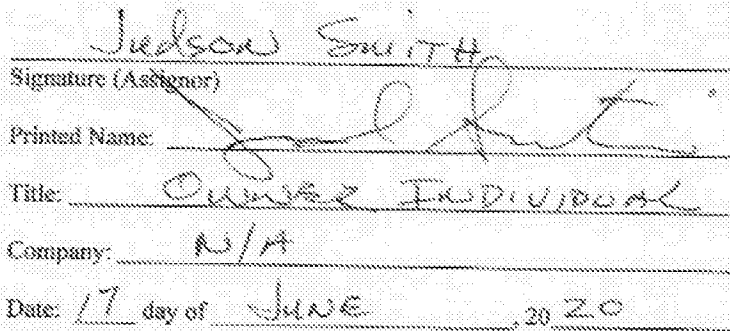 Judson Smith
Signature (Assignor)
Printed Name:
Title: Owner Individual
Company: N/A
Date: 17 day of June, 20 20